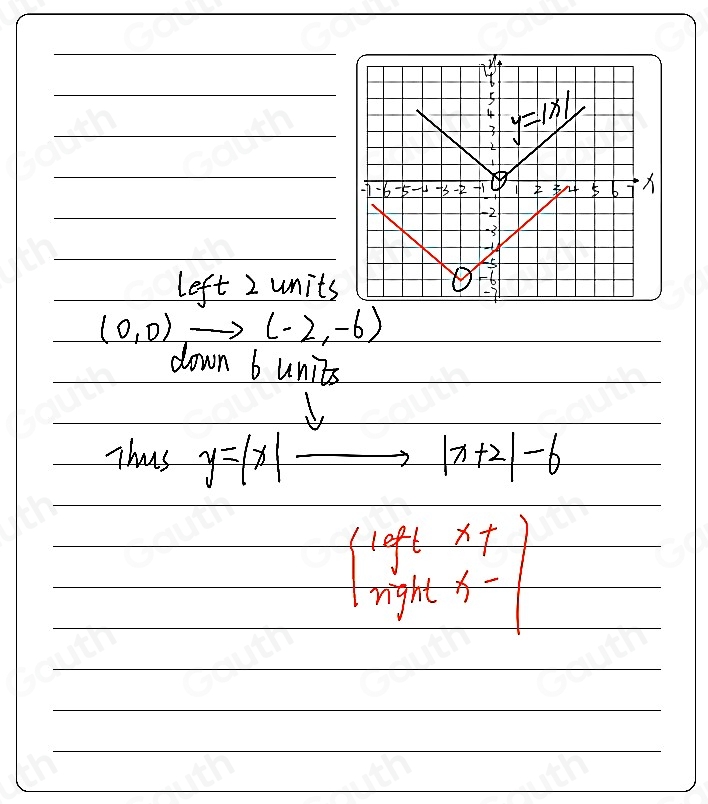 y
y=|x|
x
-7 -6 -5 -4 -3 -2 -1 1 2 3 4 5 6 7
left 2 units
(0,0) → (-2,-6)
down 6 units
↓
Thus y=|x| → |x+2|-6
left x+
right x-